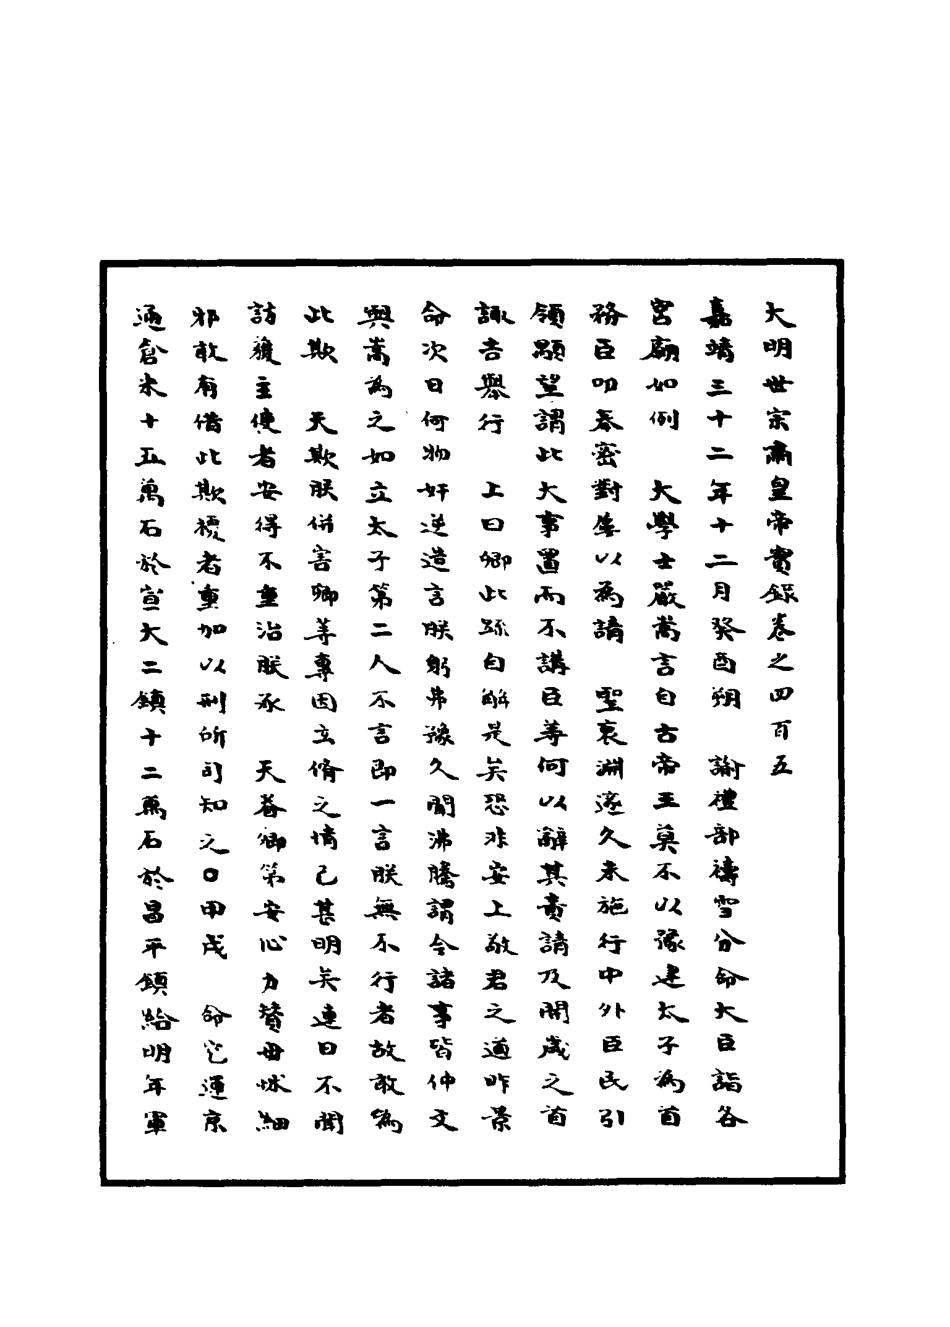 大明世宗肅皇帝實錄卷之四百五
嘉靖三十二年十二月癸酉朔　諭禮部禱雪分命大臣詣各
宮廟如例　大學士嚴嵩言自古帝王莫不以豫建太子為首
務臣叨奉密對屢以為請　聖衷淵邃久未施行中外臣民引
領顒望謂此大事置而不講臣等何以辭其責請及開歲之首
諏吉舉行　上曰卿此疏自解是矣恐非安上敬君之道昨景
命次日何物奸逆造言朕躬弗豫久聞沸騰謂今諸事皆仲文
與嵩為之如立太子第二人不言即一言朕無不行者故敢為
此欺　天欺朕併害卿等專因立脩之情已甚明矣連日不聞
訪獲主使者安得不重治朕承　天眷卿第安心力贊毋怵細
邪敢有借此欺擾者重加以刑所司知之○甲戌　命它運京
通倉米十五萬石於宣大二鎮十二萬石於昌平鎮給明年軍